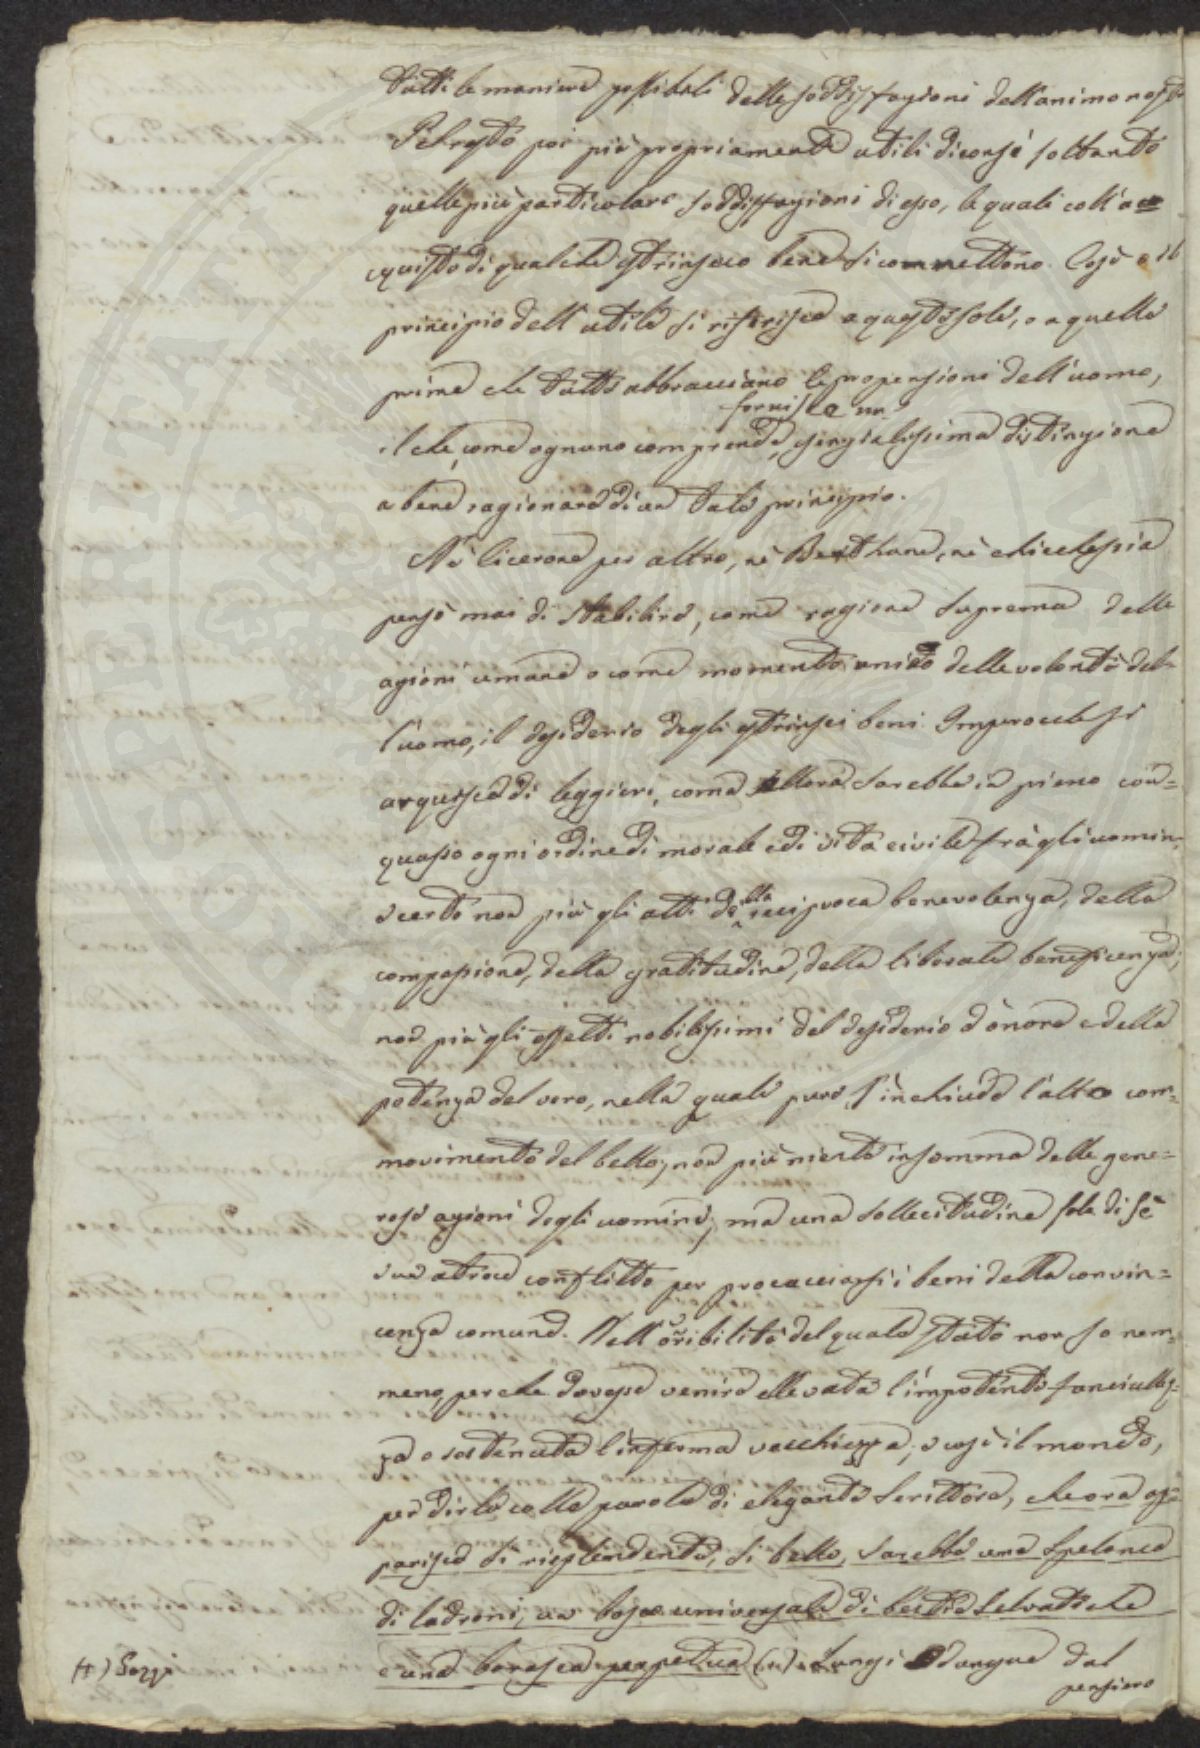 tutte le maniere possibili delle soddisfazioni dell'animo nostro
Pel resto poi più propriamente utili diconsi soltanto
quelle più particolari soddisfazioni di esso, le quali coll'ac=
quisto di qualche estrinseco bene si connettono. Così o il
principio dell'utile si riferisce a queste sole, o a quelle
prime che tutte abbracciano le propensioni dell'uomo,
fornisce una
il che, come ognuno comprende, essenzialissima distinzione
a bene ragionare di un tale principio.
Nè Cicerone per altro, nè Benthame, nè chicchessia
pensò mai di stabilire, come ragione suprema delle
azioni umane o come momento unico delle volontà del=
l'uomo, il desiderio degli estrinseci beni. Imperocchè si
arguisce di leggieri, come allora sarebbe in pieno con=
quasso ogni ordine di morale e di vita civile fra gli uomini,
e certo non più gli atti della reciproca benevolenza, della
compassione, della gratitudine, della liberale beneficenza;
non più gli effetti nobilissimi del desiderio d'onore e della
potenza del vero, nella quale pure s'inchiude l'altro com=
movimento del bello; non più niente insomma delle gene=
rose azioni degli uomini; ma una sollecitudine sola di sè
e un atroce conflitto per procacciarsi i beni della convin=
cenza comune. Nell'orribilità del quale stato non so nem=
meno, perchè dovesse venire allevata l'impotente fanciullez=
za o sostenuta l'inferma vecchiezza; e così il mondo,
per dirlo colle parole di elegante scrittore, che ora ap=
parisce sì risplendente, sì bello, sarebbe una spelonca
di ladroni, un bosco universale di bestie selvatiche
e una borasca perpetua (1). Lungi dunque dal
pensiero
(1) Gozzi